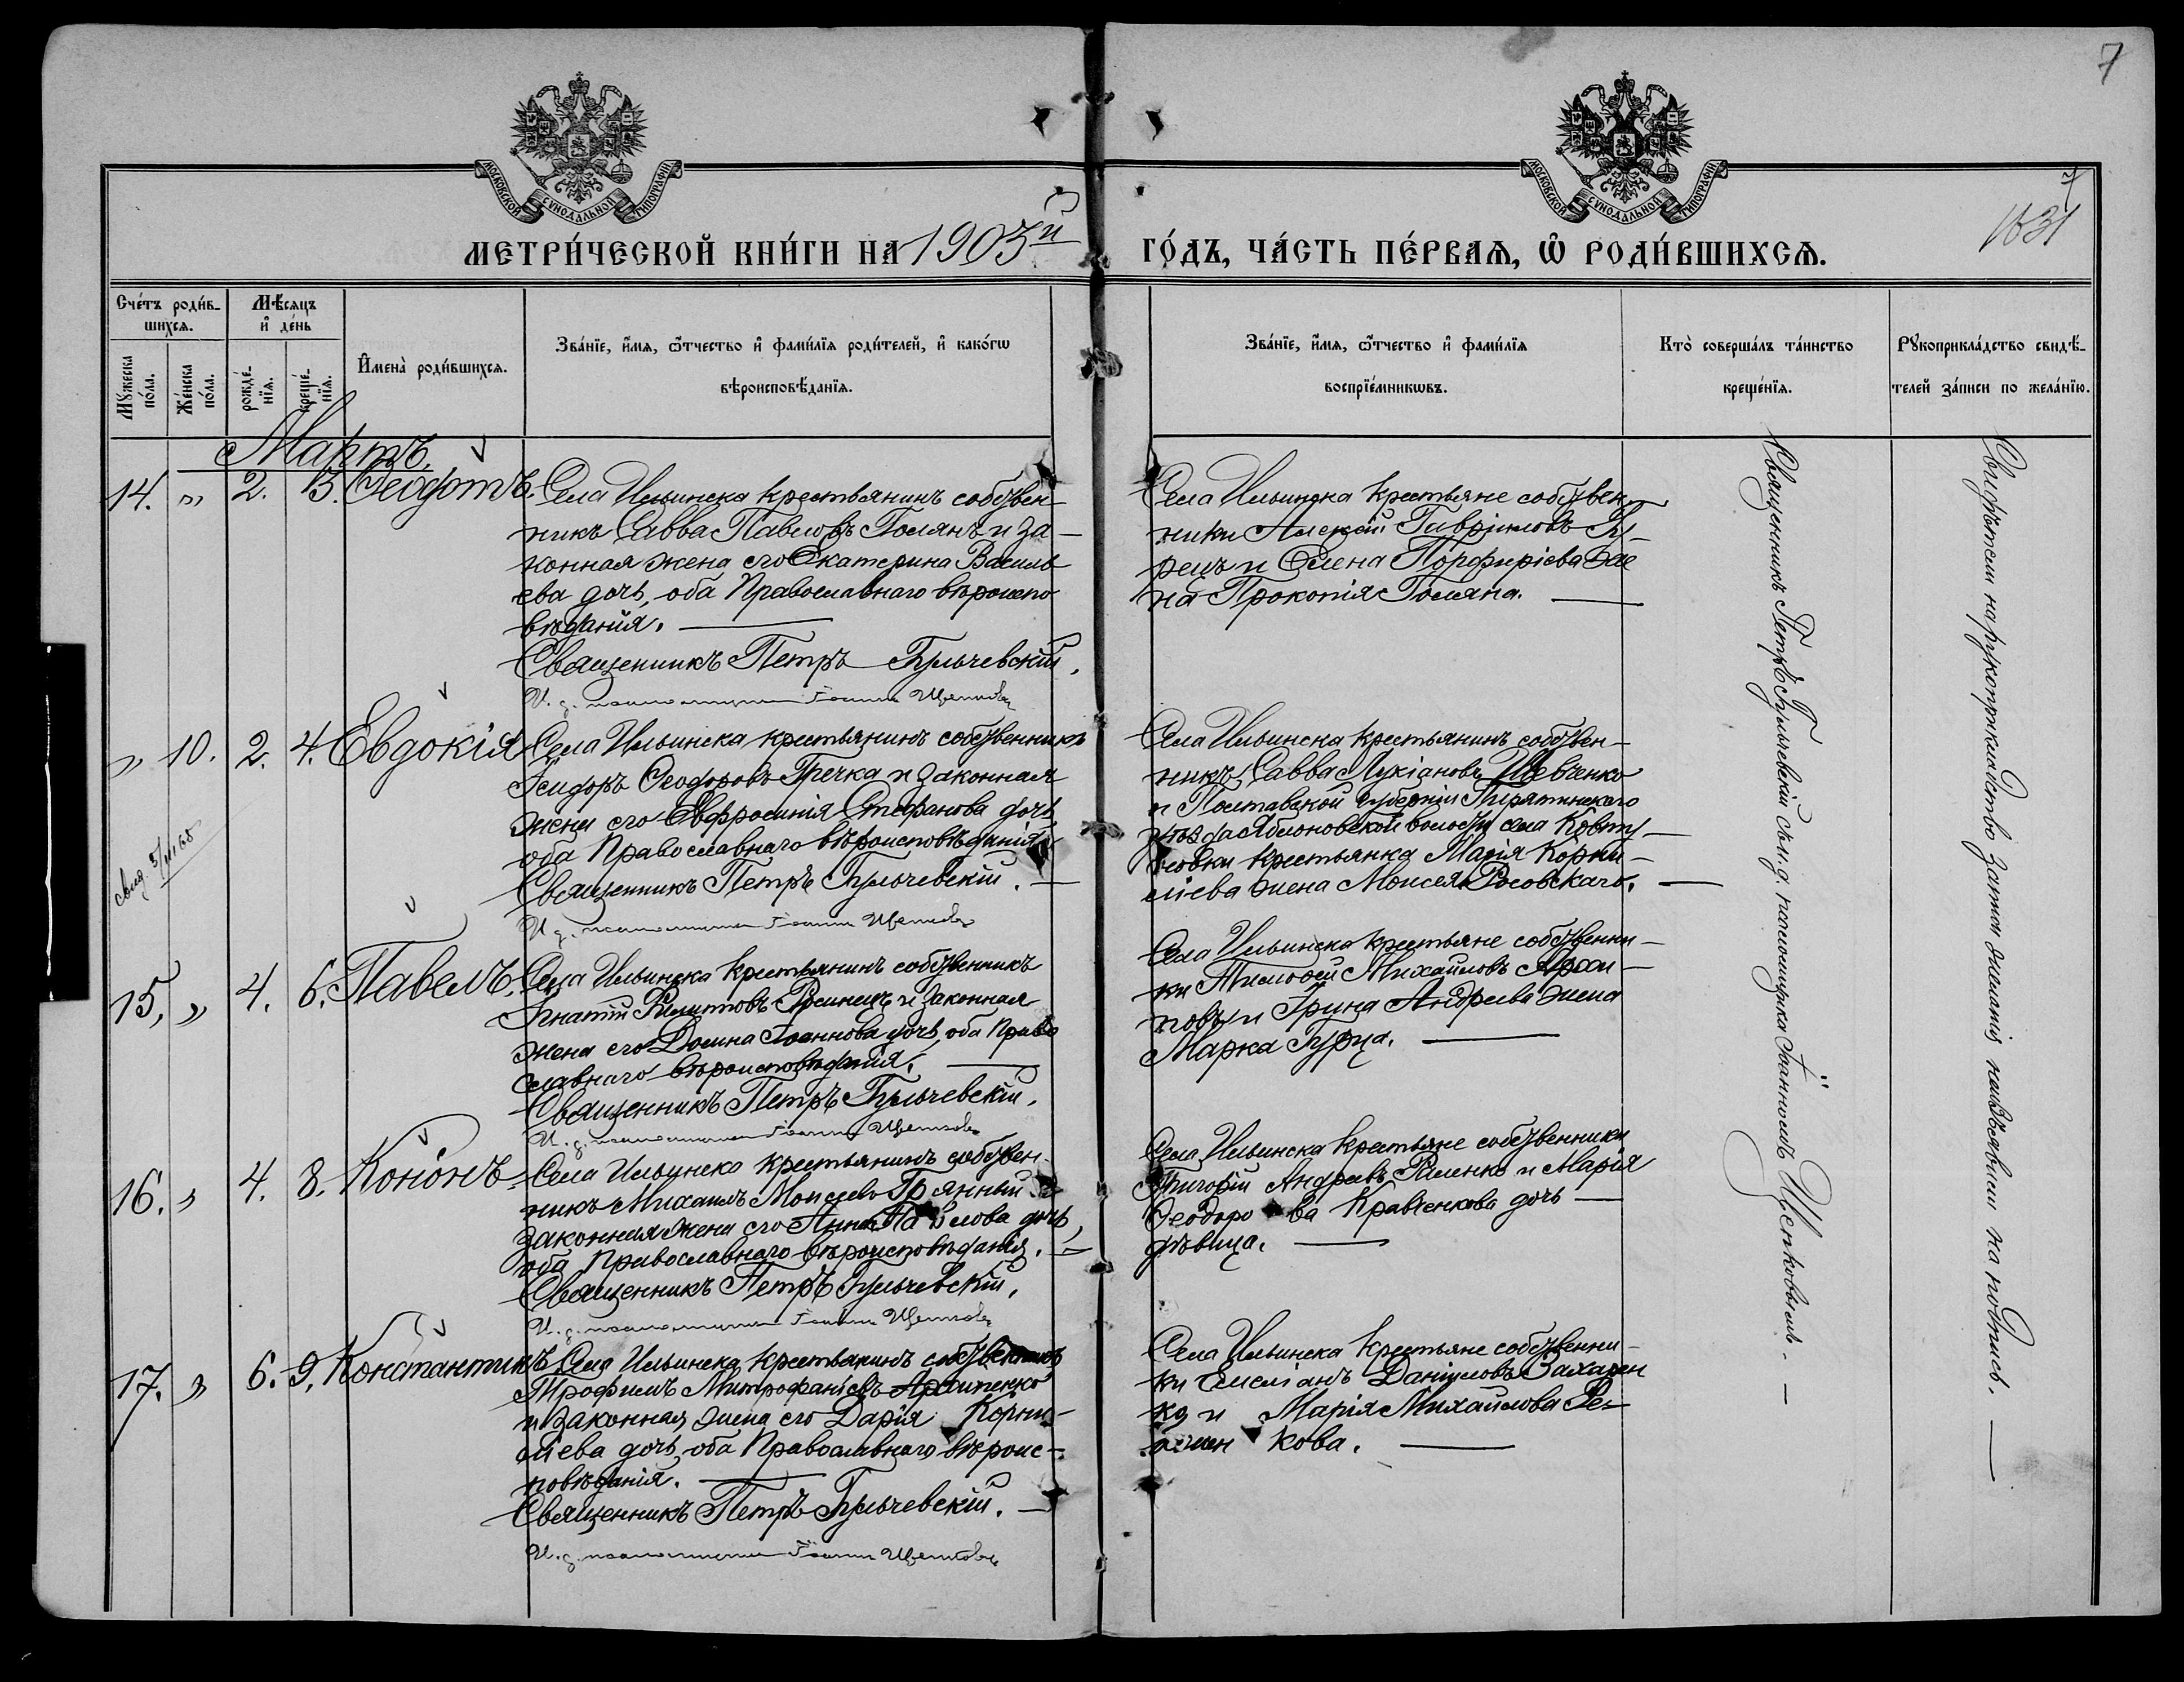 7
МОСКОВСКОЙ СѴНОДАЛЬНОЙ ТИПОГРАФІИ
МОСКОВСКОЙ СѴНОДАЛЬНОЙ ТИПОГРАФІИ
7
1031
МЕТРИ́ЧЕСКОЙ КНИ́ГИ НА 1903й ГО́ДЪ, ЧА́СТЬ ПЕ́РВАѦ, Ѡ҆ РОДИ́ВШИХСѦ.
Сче́тъ роди́в-
шихсѧ.
Мꙋ́жеска по́ла.
Же́нска по́ла.
Мѣ́сѧцъ
и҆ де́нь
рожде́-
нїѧ.
креще́-
нїѧ.
И҆мена̀ роди́вшихсѧ.
Зва́нїе, и҆́мѧ, ѻ҆́тчество и҆ фами́лїѧ роди́телей, и҆ како́гѡ
вѣроисповѣ́данїѧ.
Зва́нїе, и҆́мѧ, ѻ҆́тчество и҆ фами́лїѧ
воспрїе́мникѡвъ.
Кто̀ соверша́лъ та́инство
креще́нїѧ.
Рꙋкоприкла́дство свидѣ́-
телей за́писи по жела́нїю.
Мартъ.
14. „ 2. 3. Ѳеодотъ.
Села Ильинска крестьянинъ собствен-
никъ Савва Павловъ Голянъ и за-
конная жена его Екатерина Василь
ева дочь, оба Православнаго вѣроиспо
вѣданія.
Священникъ Петръ Бульчевскій.
И. д. псаломщика Іоаннъ Щепковъ
Села Ильинска крестьяне собствен-
ники Алексій Гавріиловъ
и Елена Порфиріева же
на Прокопія Голяна.
„ 10. 2. 4. Евдокія
Села Ильинска крестьянинъ собственникъ
Ісидоръ Ѳеодоровъ Гречка и законная
жена его Евфросинія Стефанова дочь,
оба Православнаго вѣроисповѣданія.
Священникъ Петръ Бульчевскій.
И. д. псаломщика Іоаннъ Щепковъ
Села Ильинска крестьянинъ собствен-
никъ Савва Лукіановъ Шевченко
и Полтавской губерніи Пирятинскаго
уѣзда Яблоновской волости села
крестьянка Марія Корни-
ліева жена Моисея Росовскаго.
15. „ 4. 6. Павелъ.
Села Ильинска крестьянинъ собственникъ
Игнатій и законная
жена его Домна Іоаннова дочь, оба Право
славнаго вѣроисповѣданія.
Священникъ Петръ Бульчевскій.
И. д. псаломщика Іоаннъ Щепковъ
Села Ильинска крестьяне собственни-
ки Тимоѳей Михайловъ Архи-
повъ и Ірина Андреева жена
Марка Гурца.
16. „ 4. 8. Кононъ.
Села Ильинска крестьянинъ собствен-
никъ Михаилъ Моисеевъ
законная жена его Анна Павлова дочь,
оба Православнаго вѣроисповѣданія.
Священникъ Петръ Бульчевскій.
И. д. псаломщика Іоаннъ Щепковъ
Села Ильинска крестьяне собственники
Григорій Андреевъ и Марія
Ѳеодорова Кравченкова дочь
дѣвица.
17. „ 6. 9. Константинъ
Села Ильинска крестьянинъ собственникъ
Трофимъ Митрофаніевъ Архипенко
и законная жена его Дарія Корни-
ліева дочь, оба Православнаго вѣроис-
повѣданія.
Священникъ Петръ Бульчевскій.
И. д. псаломщика Іоаннъ Щепковъ
Села Ильинска крестьяне собственни-
ки Емеліанъ Даніиловъ Захарен
ко и Марія Михайлова
Священникъ Петръ Бульчевскій съ и. д. псаломщика Іоанномъ Щепковымъ.
Свидѣтели на рукоприкладство записи желанія не изъявили на подпись.